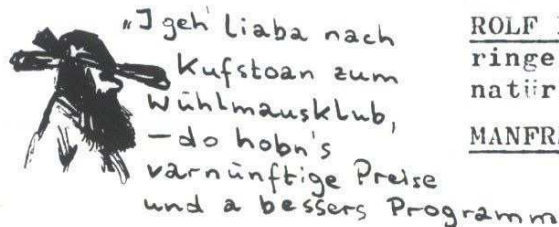 „I geh' liaba nach
Kufstoan zum
Wühlmausklub,
- do hobn's
varnünftige Preise
und a bessers Programm
ROLF
ringe
natür
MANFR